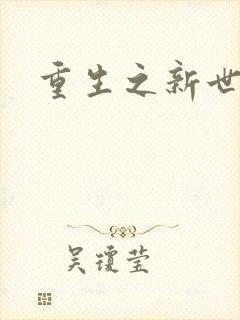 重生之新世
吴琼莹